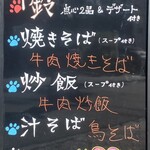 鈴 点心2品 & デザート
付き
焼きそば (スープ付き)
牛肉焼きそば
炒飯 (スープ付き)
牛肉炒飯
汁そば
鳥そば